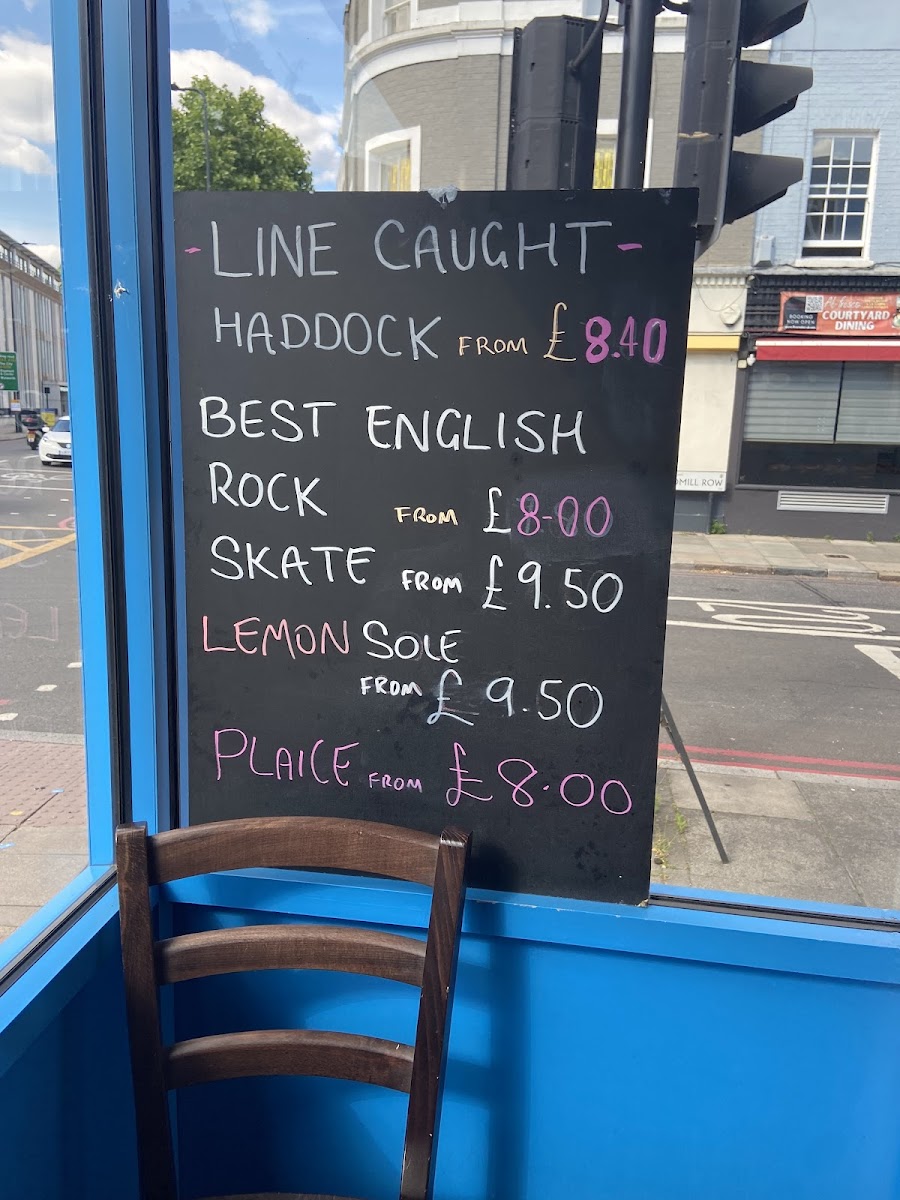 - LINE CAUGHT -
HADDOCK FROM £8.40
BEST ENGLISH
ROCK FROM £8-00
SKATE FROM £9.50
LEMON SOLE
FROM £9.50
PLAICE FROM £8.00
BOOKING
NOW OPEN
COURTYARD
DINING
MILL ROW